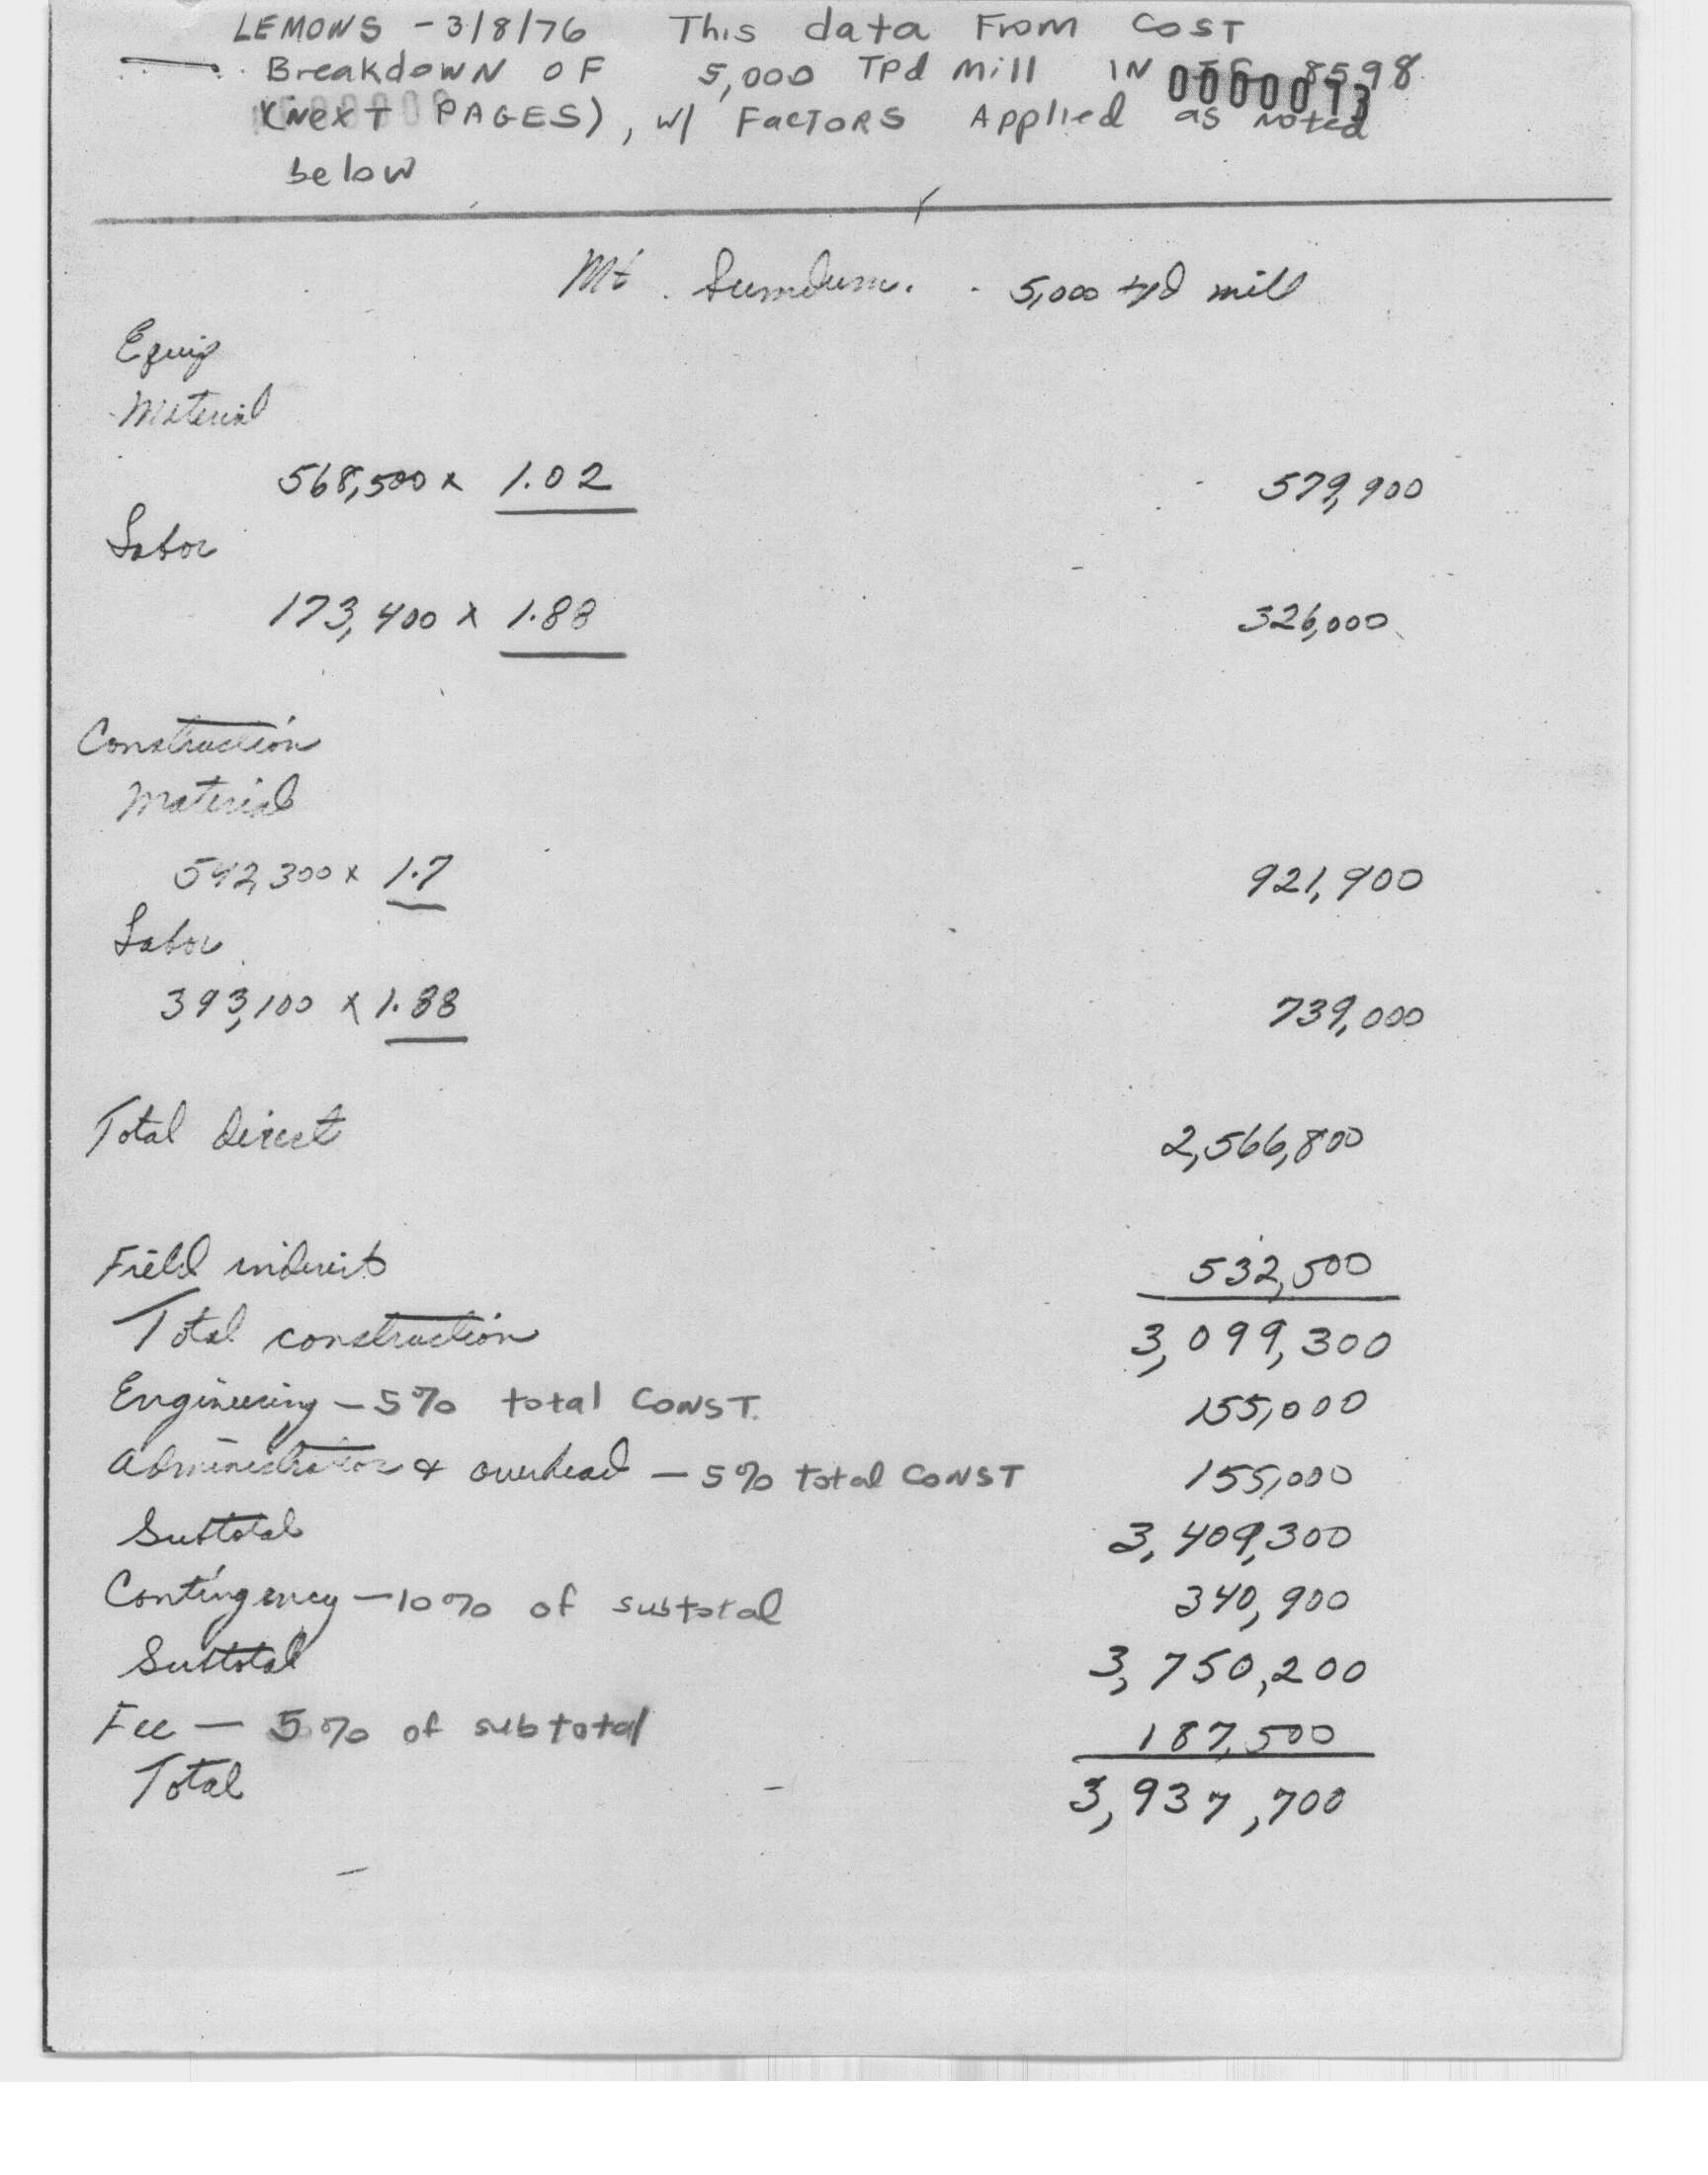 LEMONS - 3/8/76 This data From COST
Breakdown OF 5,000 Tpd Mill IN IC 8598
00000013
(Next PAGES), w/ FacTORS Applied as Noted
below
Mt. Sumdum. - 5,000 tpd mill
Equip
Material
568,500 x 1.02 579,900
Labor
173,400 x 1.88 326,000
Construction
Material
542,300 x 1.7 921,900
Labor
393,100 x 1.88 739,000
Total direct 2,566,800
Field indirect 532,500
Total construction 3,099,300
Engineering - 5% total CONST. 155,000
Administration & overhead - 5% total CONST 155,000
Subtotal 3,409,300
Contingency - 10% of subtotal 340,900
Subtotal 3,750,200
Fee - 5% of subtotal 187,500
Total 3,937,700